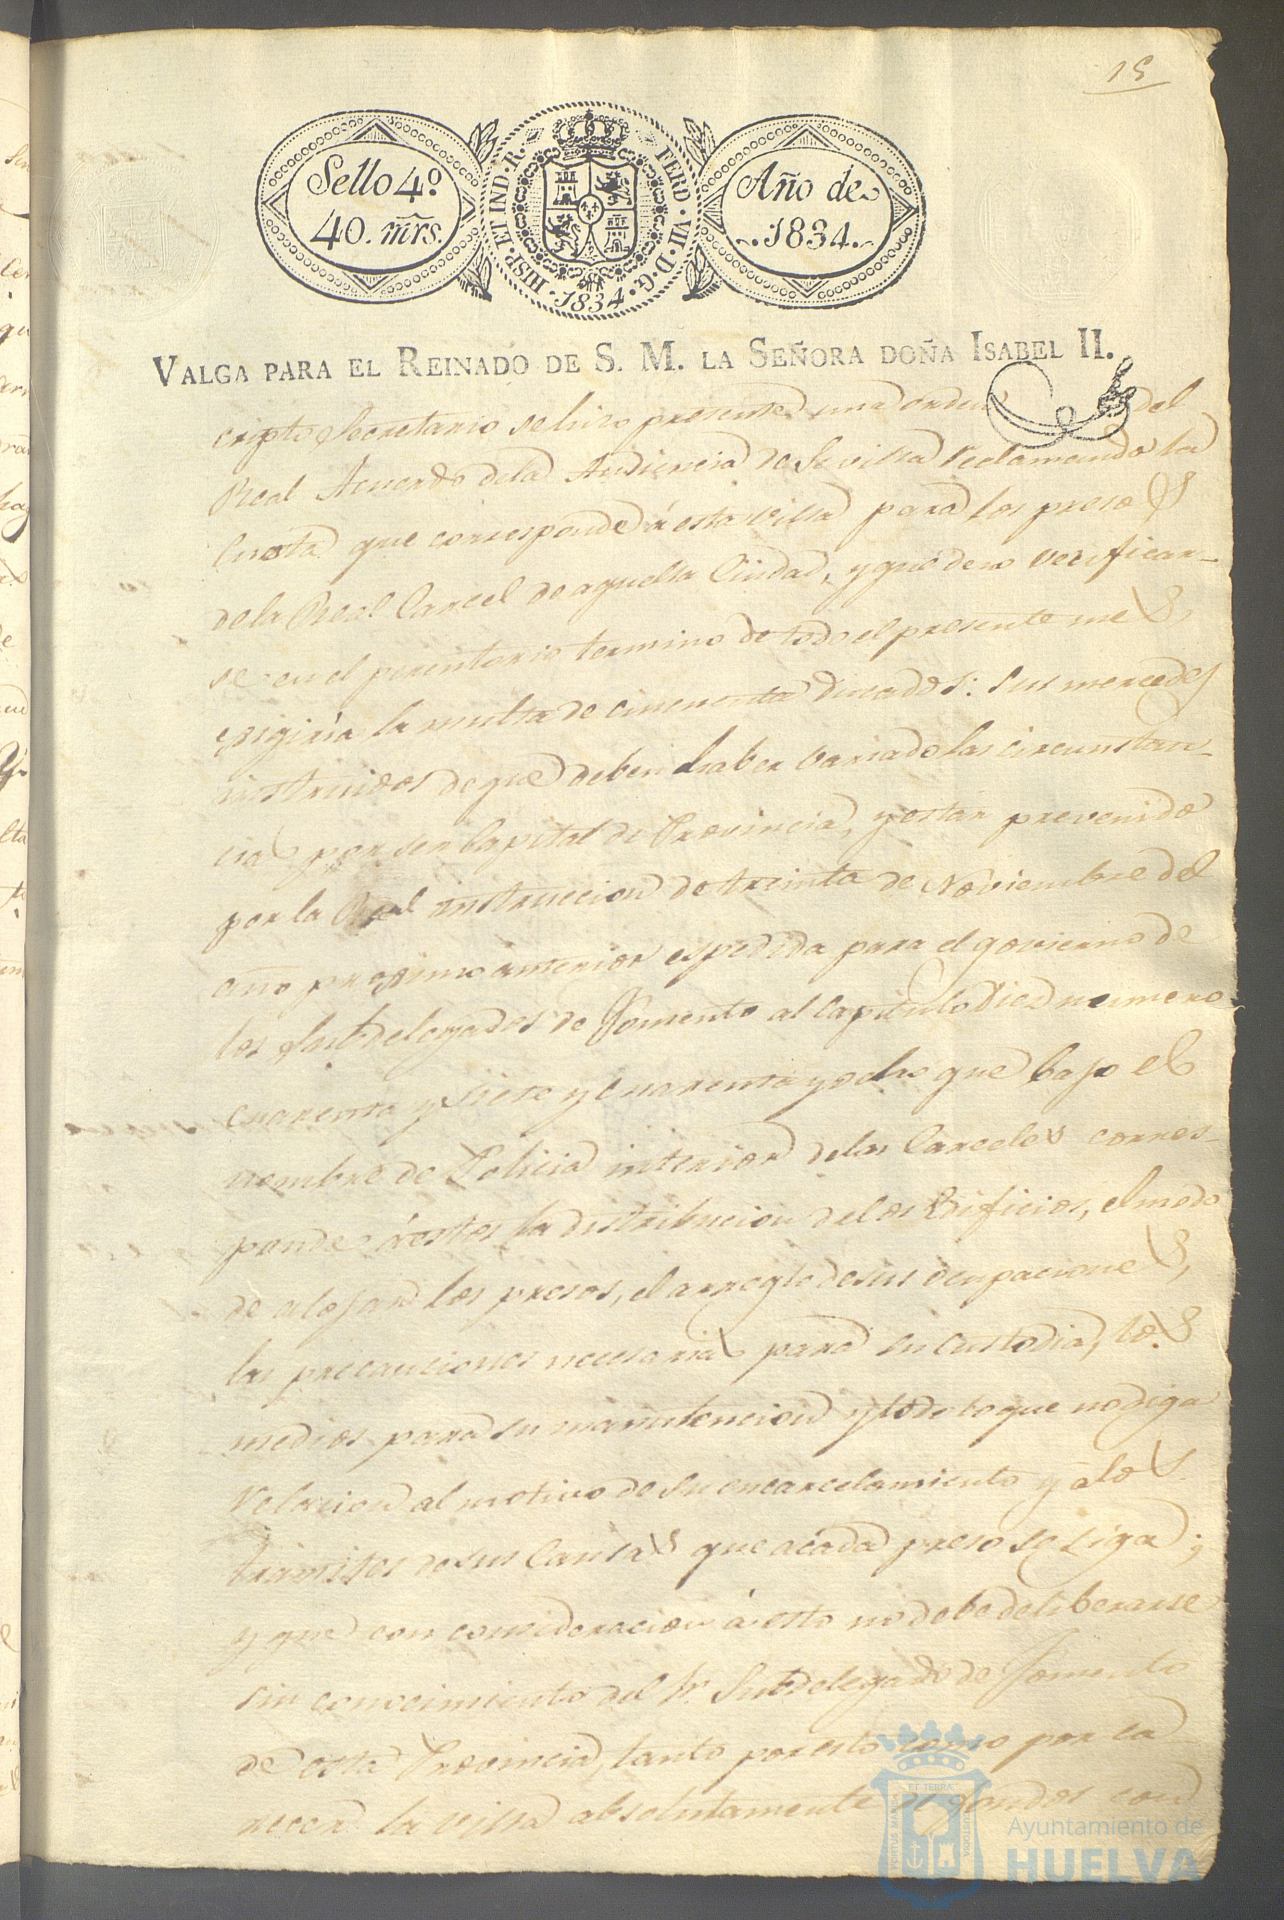 15
Sello 4º
40. mrs.
HISP. ET IND. R. FERD. VII. D. G. 1834.
Año de
1834.
VALGA PARA EL REINADO DE S. M. LA SEÑORA DOÑA ISABEL II.
cripto Secretario se hizo presente una orden del
Real Acuerdo dela Audiencia de Sevilla reclamando la
cuota que corresponde á esta villa para los presos
dela Real Carcel de aquella Ciudad, y que deno verificar-
se en el perentorio termino de todo el presente mes,
exigiria la multa de cincuenta ducados: sus mercedes
instruidos de que deben haber variado las circunstan-
cias por ser Capital de Provincia, y estar prevenido
por la Real instruccion de treinta de Noviembre del
año proximo anterior espedida para el govierno de
los Subdelegados de Fomento al Capitulo diez numero
cuarenta y siete y cuarenta y ocho que bajo el
nombre de Policia interior delas Carceles corres-
ponde á estos la distribucion delos Edificios, el modo
de alojar los presos, el arreglo de sus ocupaciones,
las precauciones necesarias para su custodia, los
medios para su manutencion y todo lo que no diga
relacion al motivo de su encarcelamiento y alos
tramites de sus Causas que acada preso se siga;
y que con consideracion á esto no debe deliberarse
sin conocimiento del Sr. Subdelegado de Fomento
de esta Provincia, tanto por esto como por ca
recer la villa absolutamente de fondos con
PORTUS MARIS ET TERRÆ CUSTODIA
Ayuntamiento de
HUELVA